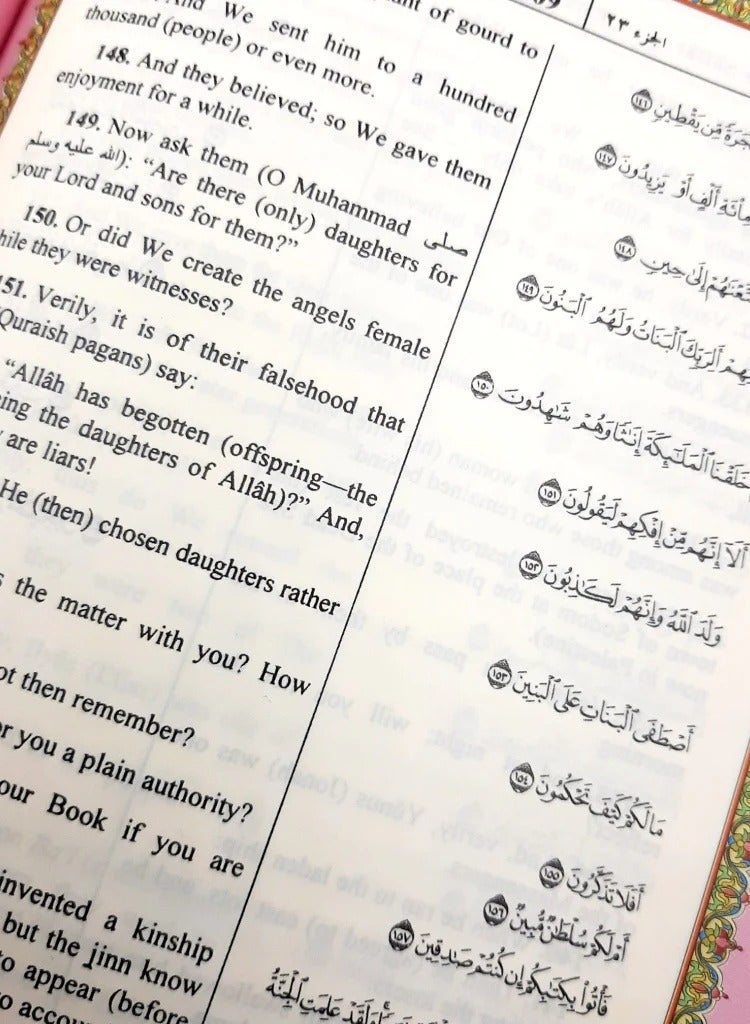 of gourd to
And We sent him to a hundred
thousand (people) or even more.
148. And they believed; so We gave them
enjoyment for a while.
149. Now ask them (O Muhammad صلى
الله عليه وسلم): “Are there (only) daughters for
your Lord and sons for them?”
150. Or did We create the angels female
while they were witnesses?
151. Verily, it is of their falsehood that
Quraish pagans) say:
“Allâh has begotten (offspring—the
the daughters of Allâh)?” And,
are liars!
He (then) chosen daughters rather
the matter with you? How
then remember?
you a plain authority?
Book if you are
invented a kinship
but the jinn know
to appear (before
الجزء ٢٣
مِّن يَقْطِينٍ ١٤٦
أَلْفٍ أَوْ يَزِيدُونَ ١٤٧
إِلَىٰ حِينٍ ١٤٨
أَلِرَبِّكَ ٱلْبَنَاتُ وَلَهُمُ ٱلْبَنُونَ ١٤٩
ٱلْمَلَٰٓئِكَةَ إِنَٰثًا وَهُمْ شَٰهِدُونَ ١٥٠
أَلَآ إِنَّهُم مِّنْ إِفْكِهِمْ لَيَقُولُونَ ١٥١
وَلَدَ ٱللَّهُ وَإِنَّهُمْ لَكَٰذِبُونَ ١٥٢
أَصْطَفَى ٱلْبَنَاتِ عَلَى ٱلْبَنِينَ ١٥٣
مَا لَكُمْ كَيْفَ تَحْكُمُونَ ١٥٤
أَفَلَا تَذَكَّرُونَ ١٥٥
أَمْ لَكُمْ سُلْطَٰنٌ مُّبِينٌ ١٥٦
فَأْتُوا۟ بِكِتَٰبِكُمْ إِن كُنتُمْ صَٰدِقِينَ ١٥٧
وَلَقَدْ عَلِمَتِ ٱلْجِنَّةُ